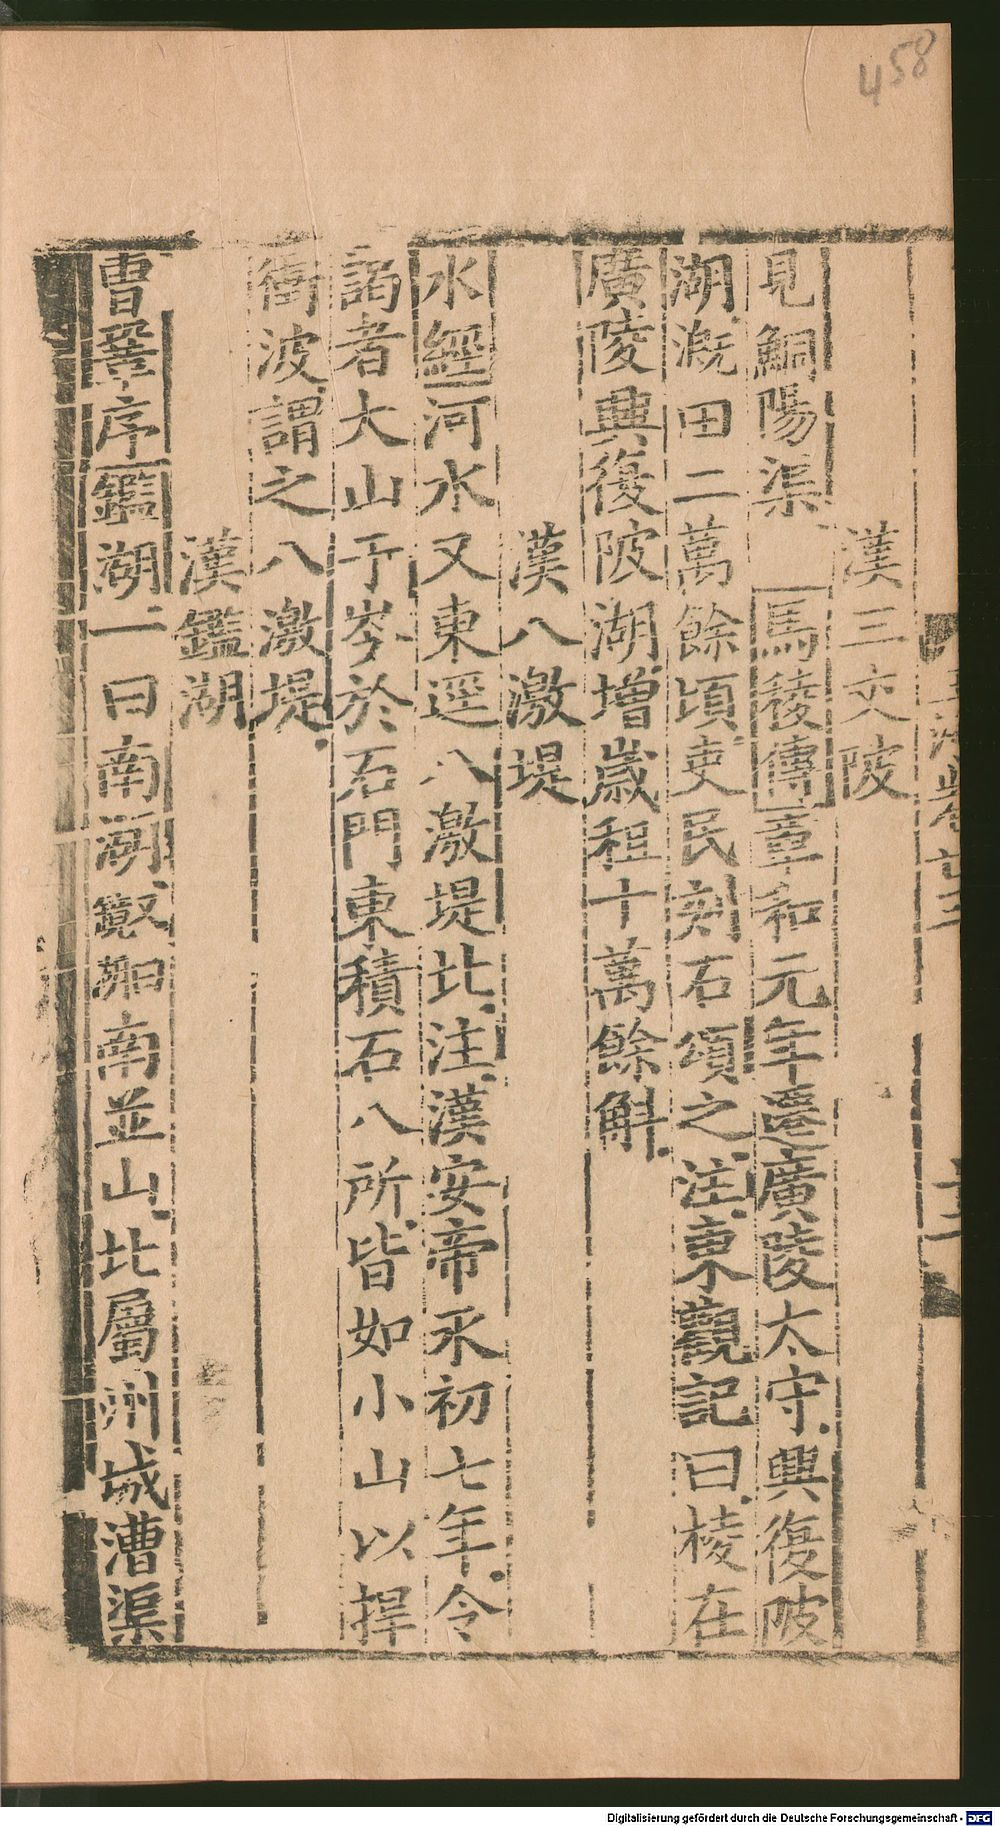 458
漢三交陂
見鮦陽渠 馬稜傳章和元年遷廣陵太守興復陂
湖溉田二萬餘頃吏民刻石頌之注東觀記曰棱在
廣陵興復陂湖增歲租十萬餘斛
漢八激堤
水經河水又東逕八激堤北注漢安帝永初七年令
謁者大山于岑於石門東積石八所皆如小山以捍
衝波謂之八激堤
漢鑑湖
曹鞏序鑑湖一曰南湖
南並山北屬州城漕渠
Digitalisierung gefördert durch die Deutsche Forschungsgemeinschaft - DFG